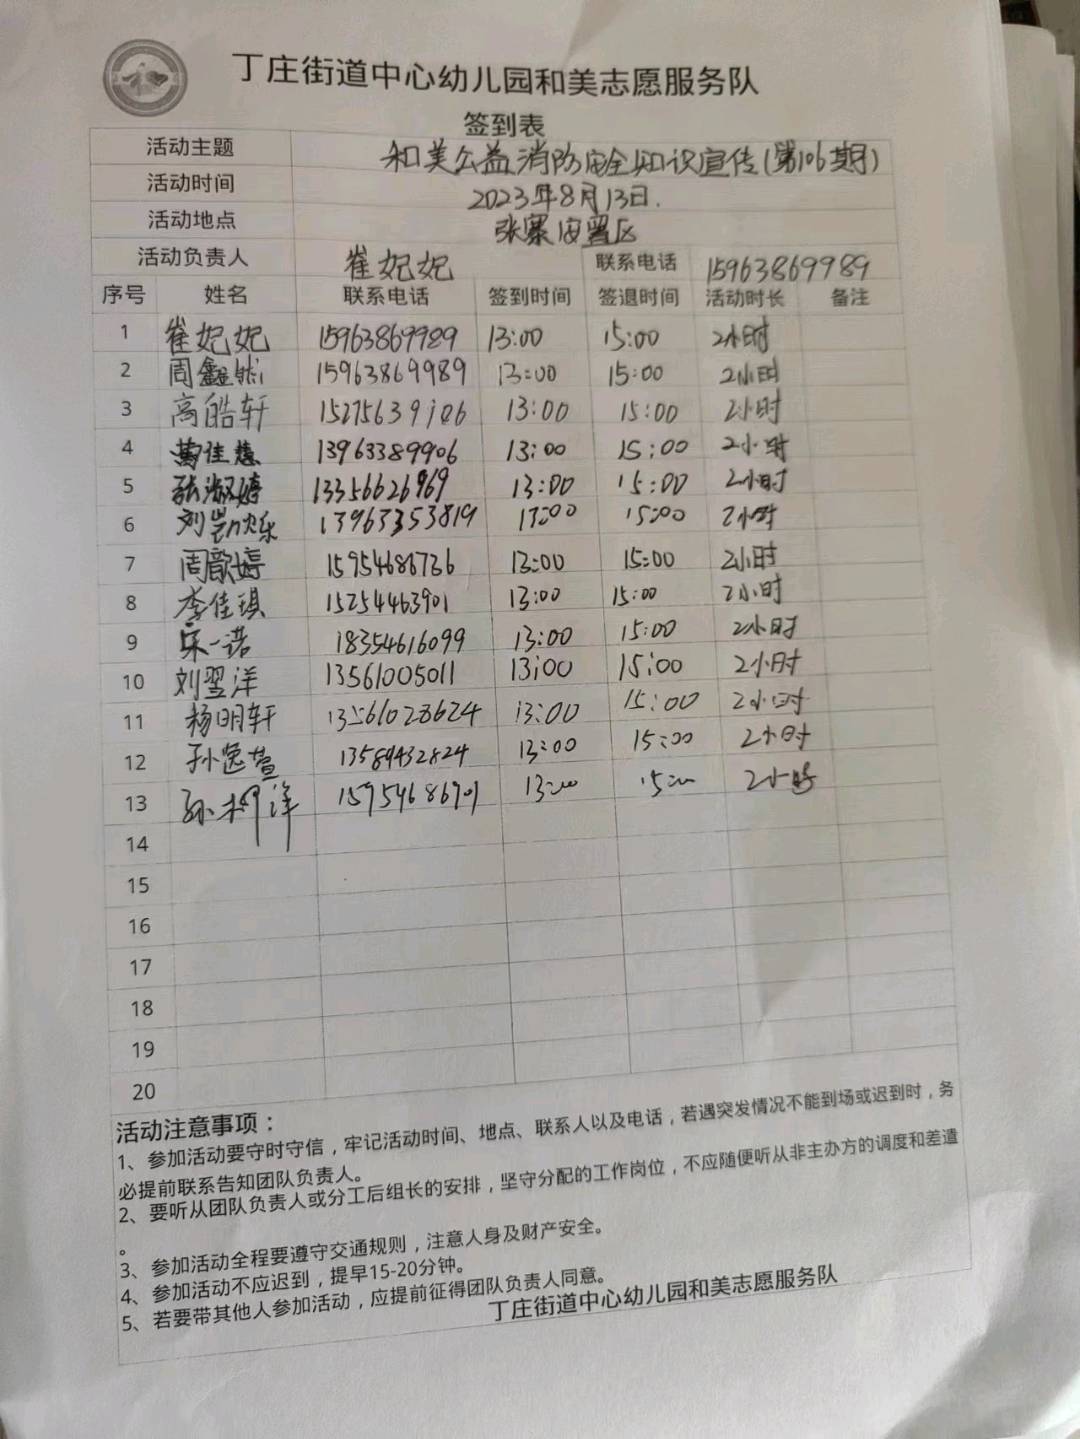 丁庄街道中心幼儿园和美志愿服务队
签到表
活动主题 和美公益消防安全知识宣传(第106期)
活动时间 2023年8月13日.
活动地点 张寨安置区
活动负责人 崔妃妃 联系电话 15963869989
序号 姓名 联系电话 签到时间 签退时间 活动时长 备注
1 崔妃妃 15963869989 13:00 15:00 2小时
2 周鑫 15963869989 13:00 15:00 2小时
3 高皓轩 13:00 15:00 2小时
4 佳慧 13963389906 13:00 15:00 2小时
5 张淑婷 13356626969 13:00 15:00 2小时
6 刘凯乐 13963353819 13:00 15:00 2小时
7 周歆婷 15954686736 13:00 15:00 2小时
8 李佳琪 15254463901 13:00 15:00 2小时
9 宋一诺 18354616099 13:00 15:00 2小时
10 刘翌洋 13561005011 13:00 15:00 2小时
11 杨明轩 13561028624 13:00 15:00 2小时
12 孙逸萱 13589432824 13:00 15:00 2小时
13 孙柯洋 15954686901 13:00 15:00 2小时
14
15
16
17
18
19
20
活动注意事项：
1、参加活动要守时守信，牢记活动时间、地点、联系人以及电话，若遇突发情况不能到场或迟到时，务
必提前联系告知团队负责人。
2、要听从团队负责人或分工后组长的安排，坚守分配的工作岗位，不应随便听从非主办方的调度和差遣
。
3、参加活动全程要遵守交通规则，注意人身及财产安全。
4、参加活动不应迟到，提早15-20分钟。
5、若要带其他人参加活动，应提前征得团队负责人同意。
丁庄街道中心幼儿园和美志愿服务队